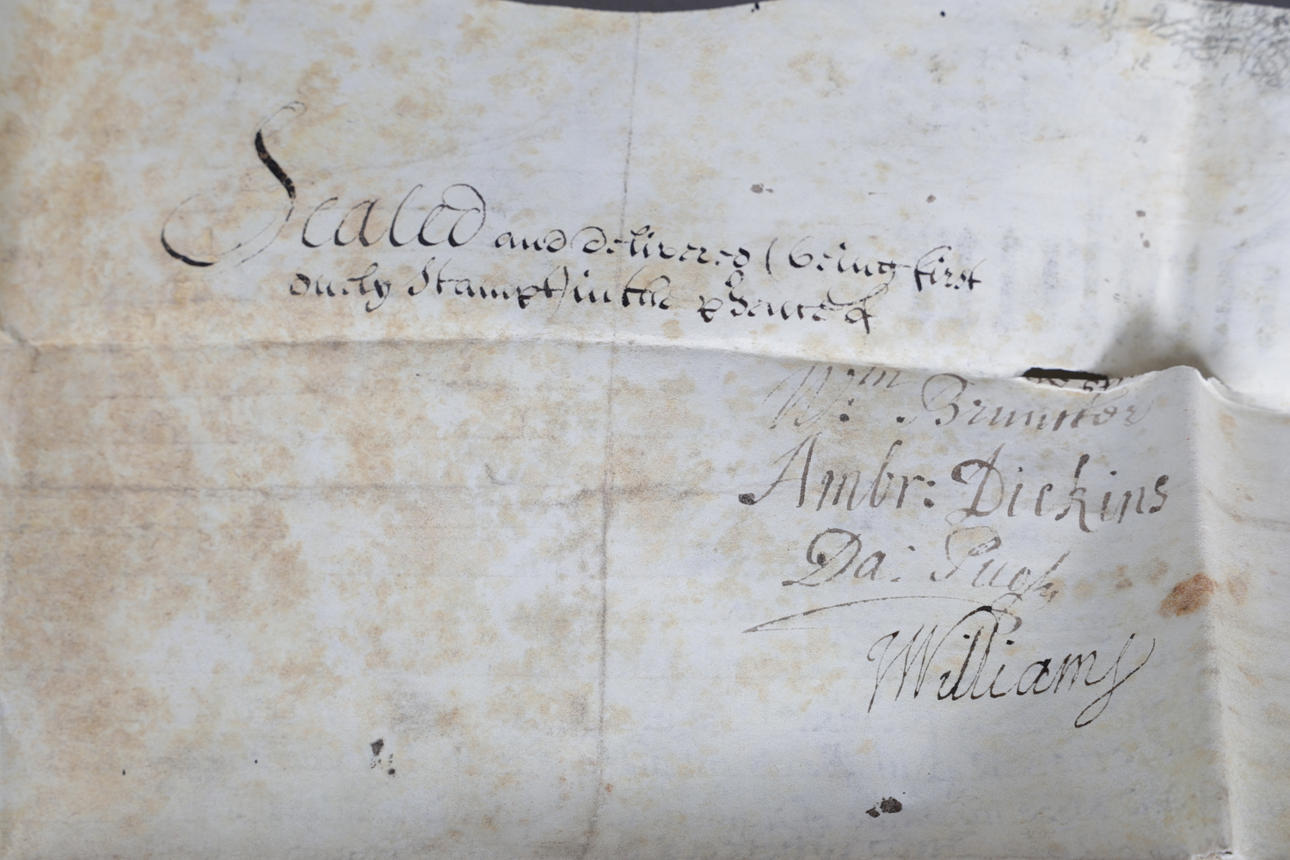 Sealed and delivered (being first
duely Stampt) in the p̱sence of
Wm. Brunker
Ambr: Dickins
Da: Pugh
JWilliams